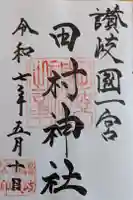 讃岐國一宮
田村神社
令和七年五月十日